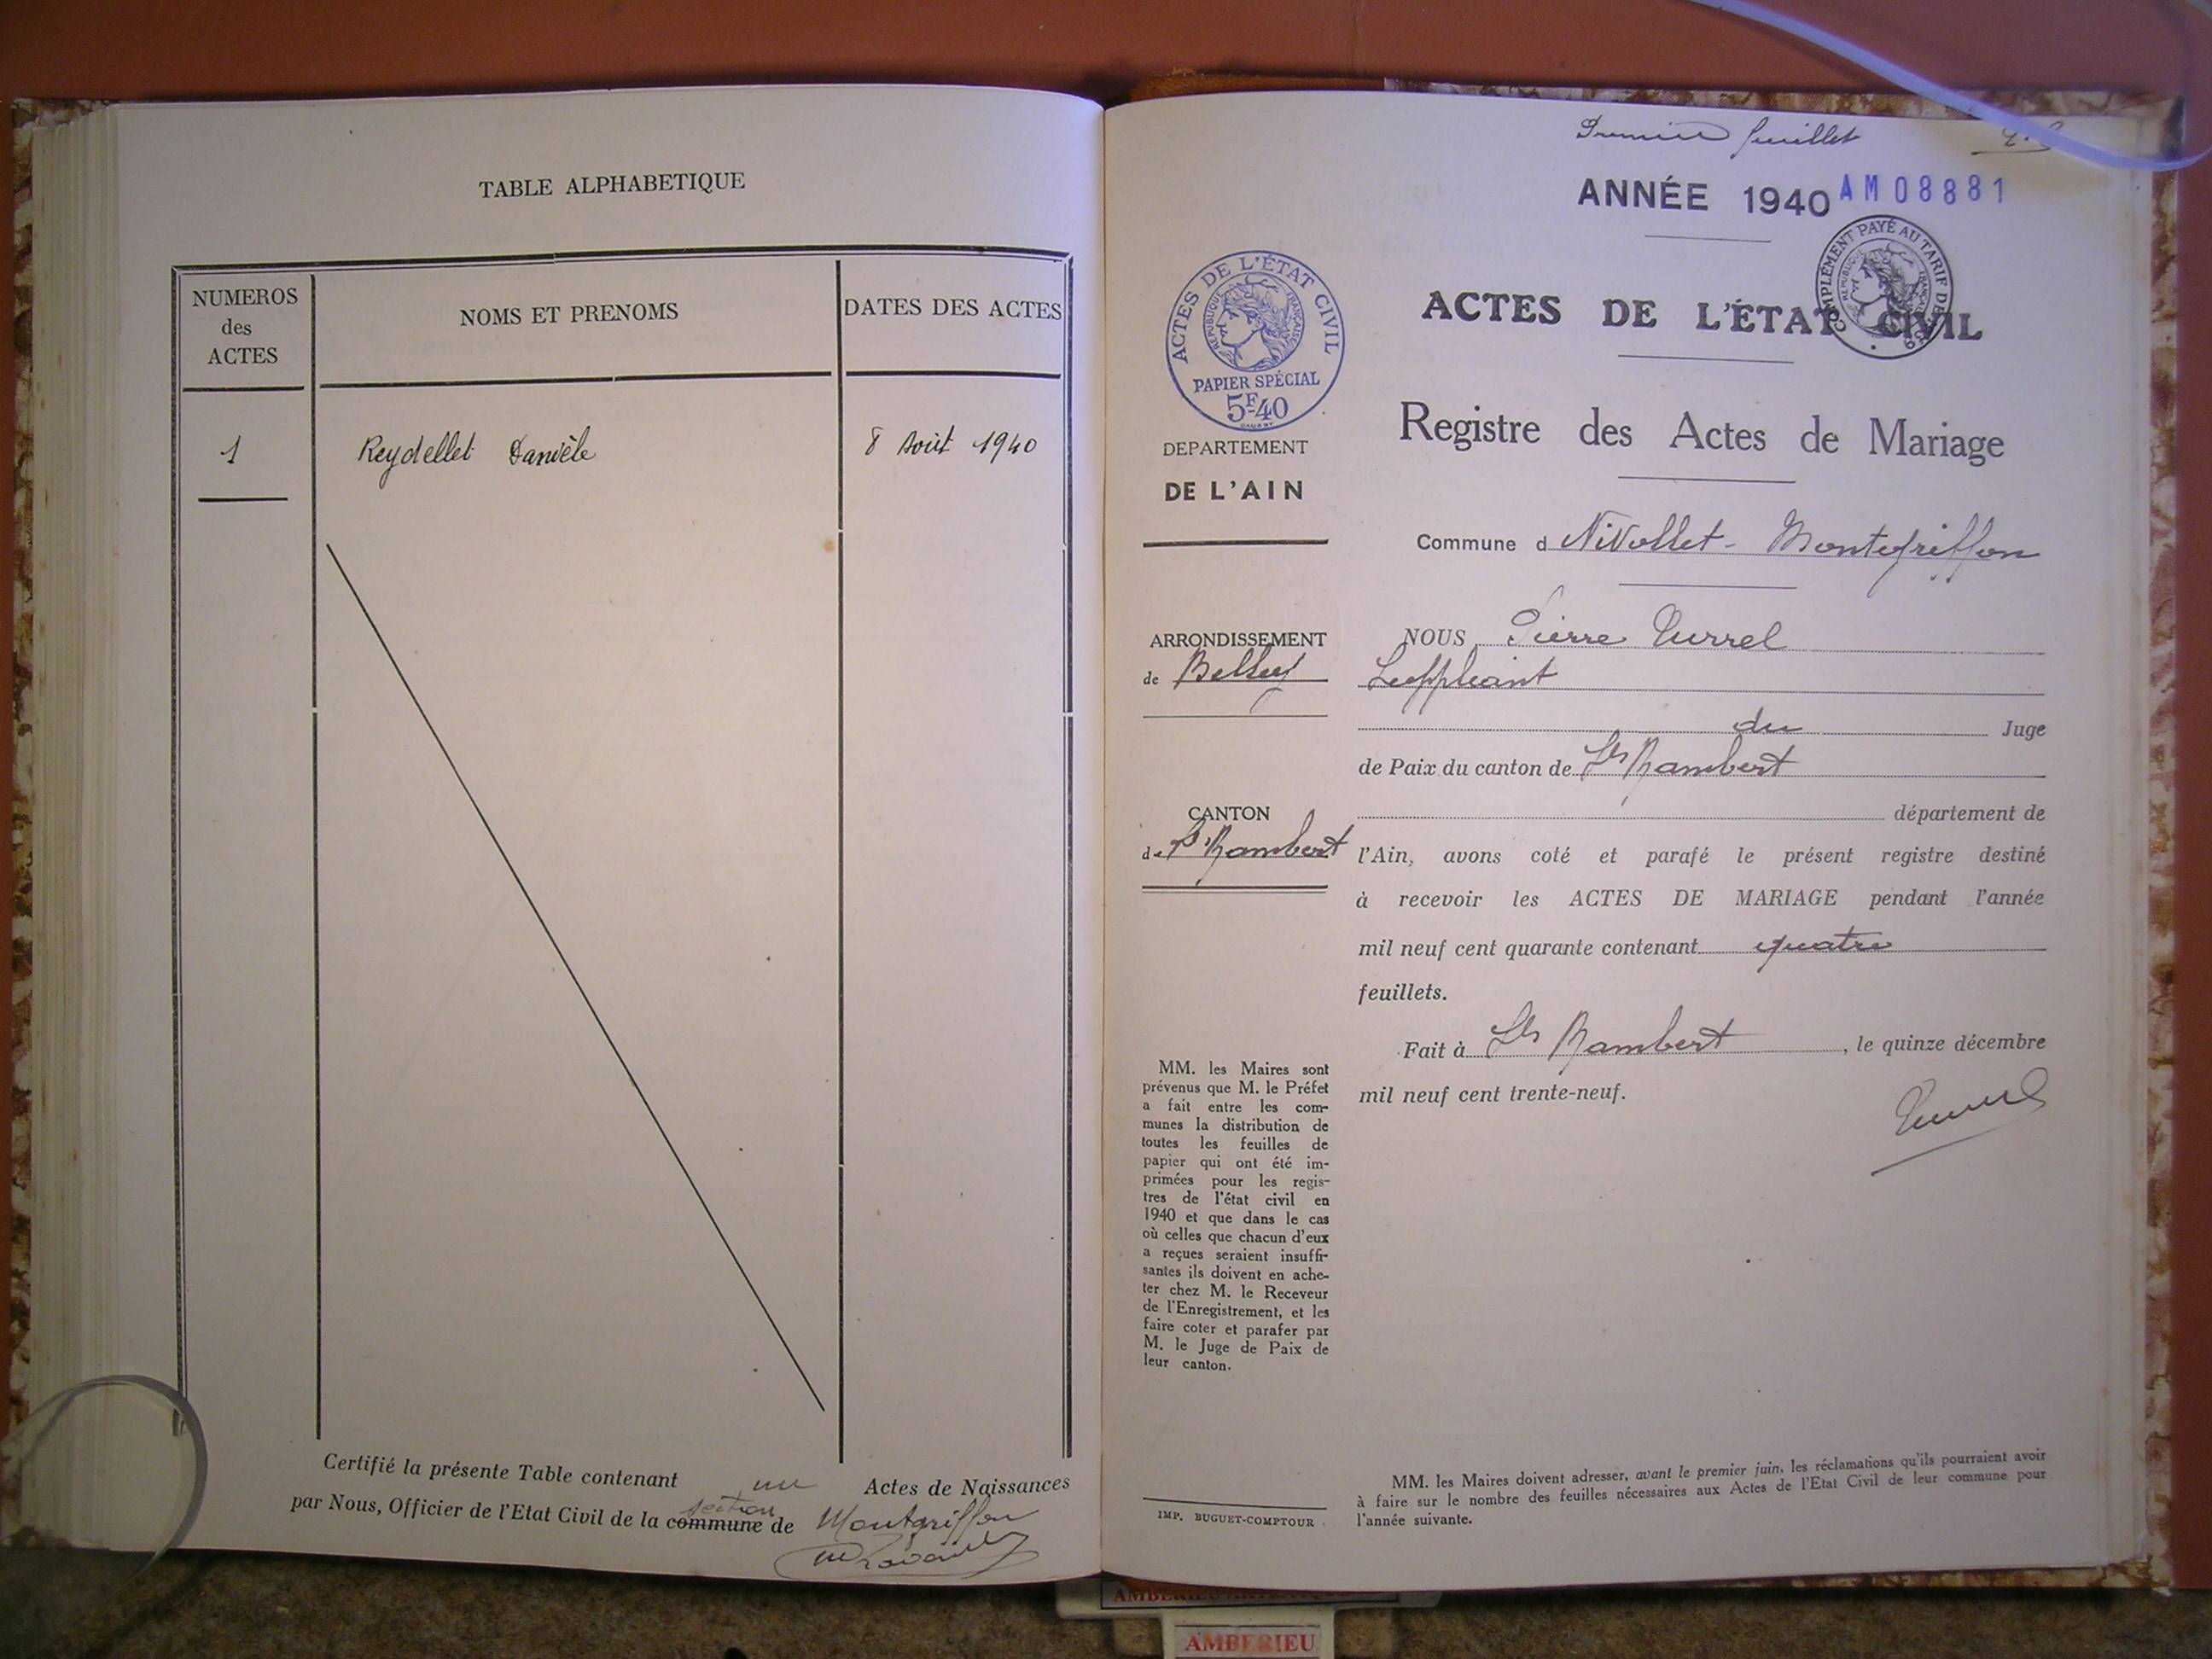 TABLE ALPHABETIQUE
NUMEROS
des
ACTES
NOMS ET PRENOMS
DATES DES ACTES
1
Reydellet Danièle
8 Août 1940
Certifié la présente Table contenant un Actes de Naissances
section
par Nous, Officier de l'Etat Civil de la commune de Montgriffon
Premier feuillet
ANNÉE 1940
AM08881
COMPLÉMENT PAYÉ AU TARIF DE
ACTES DE L'ÉTAT CIVIL
RÉPUBLIQUE FRANÇAISE
PAPIER SPÉCIAL
5F40
DEPARTEMENT
DE L'AIN
ARRONDISSEMENT
de Belley
CANTON
de St Rambert
MM. les Maires sont
prévenus que M. le Préfet
a fait entre les com-
munes la distribution de
toutes les feuilles de
papier qui ont été im-
primées pour les regis-
tres de l'état civil en
1940 et que dans le cas
où celles que chacun d'eux
a reçues seraient insuffi-
santes ils doivent en ache-
ter chez M. le Receveur
de l'Enregistrement, et les
faire coter et parafer par
M. le Juge de Paix de
leur canton.
IMP. BUGUET-COMPTOUR
ACTES DE L'ÉTAT CIVIL
Registre des Actes de Mariage
Commune d Nivollet-Montgriffon
NOUS Pierre Turrel
Suppléant
du Juge
de Paix du canton de St Rambert
département de
l'Ain, avons coté et parafé le présent registre destiné
à recevoir les ACTES DE MARIAGE pendant l'année
mil neuf cent quarante contenant quatre
feuillets.
Fait à St Rambert, le quinze décembre
mil neuf cent trente-neuf.
Turrel
MM. les Maires doivent adresser, avant le premier juin, les réclamations qu'ils pourraient avoir
à faire sur le nombre des feuilles nécessaires aux Actes de l'Etat Civil de leur commune pour
l'année suivante.
AMBERIEU